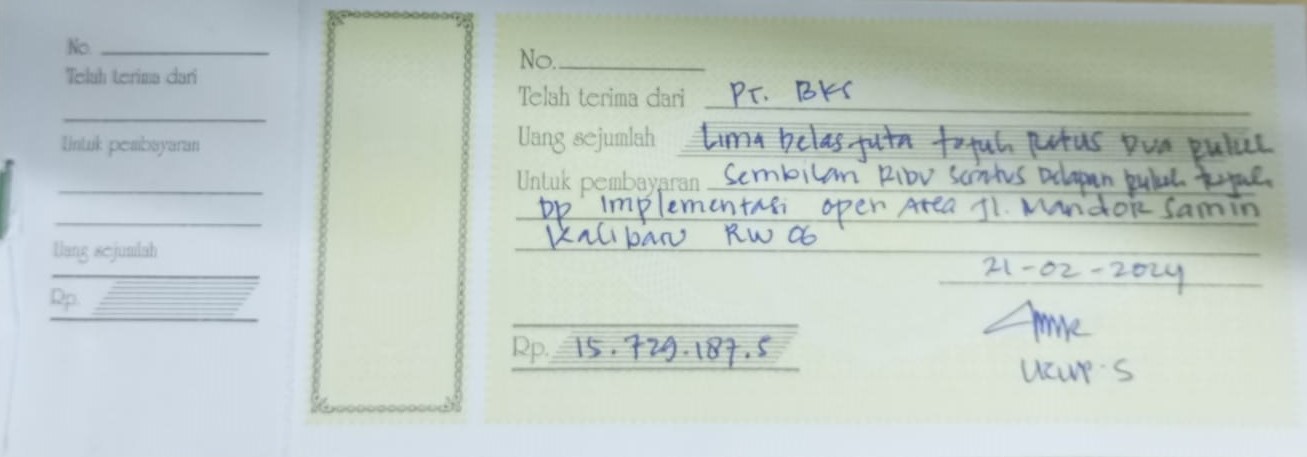 No.
Telah terima dari
Untuk pembayaran
Uang sejumlah
Rp.
No.
Telah terima dari PT. BKS
Uang sejumlah Lima belas juta tujuh Ratus Dua puluh
Untuk pembayaran Sembilan Ribu Seratus Delapan puluh tujuh
DP Implementasi open Area Jl. Mandor Samin
Kalibaru RW 06
21-02-2024
Rp. 15.729.187.5
Ucup.S